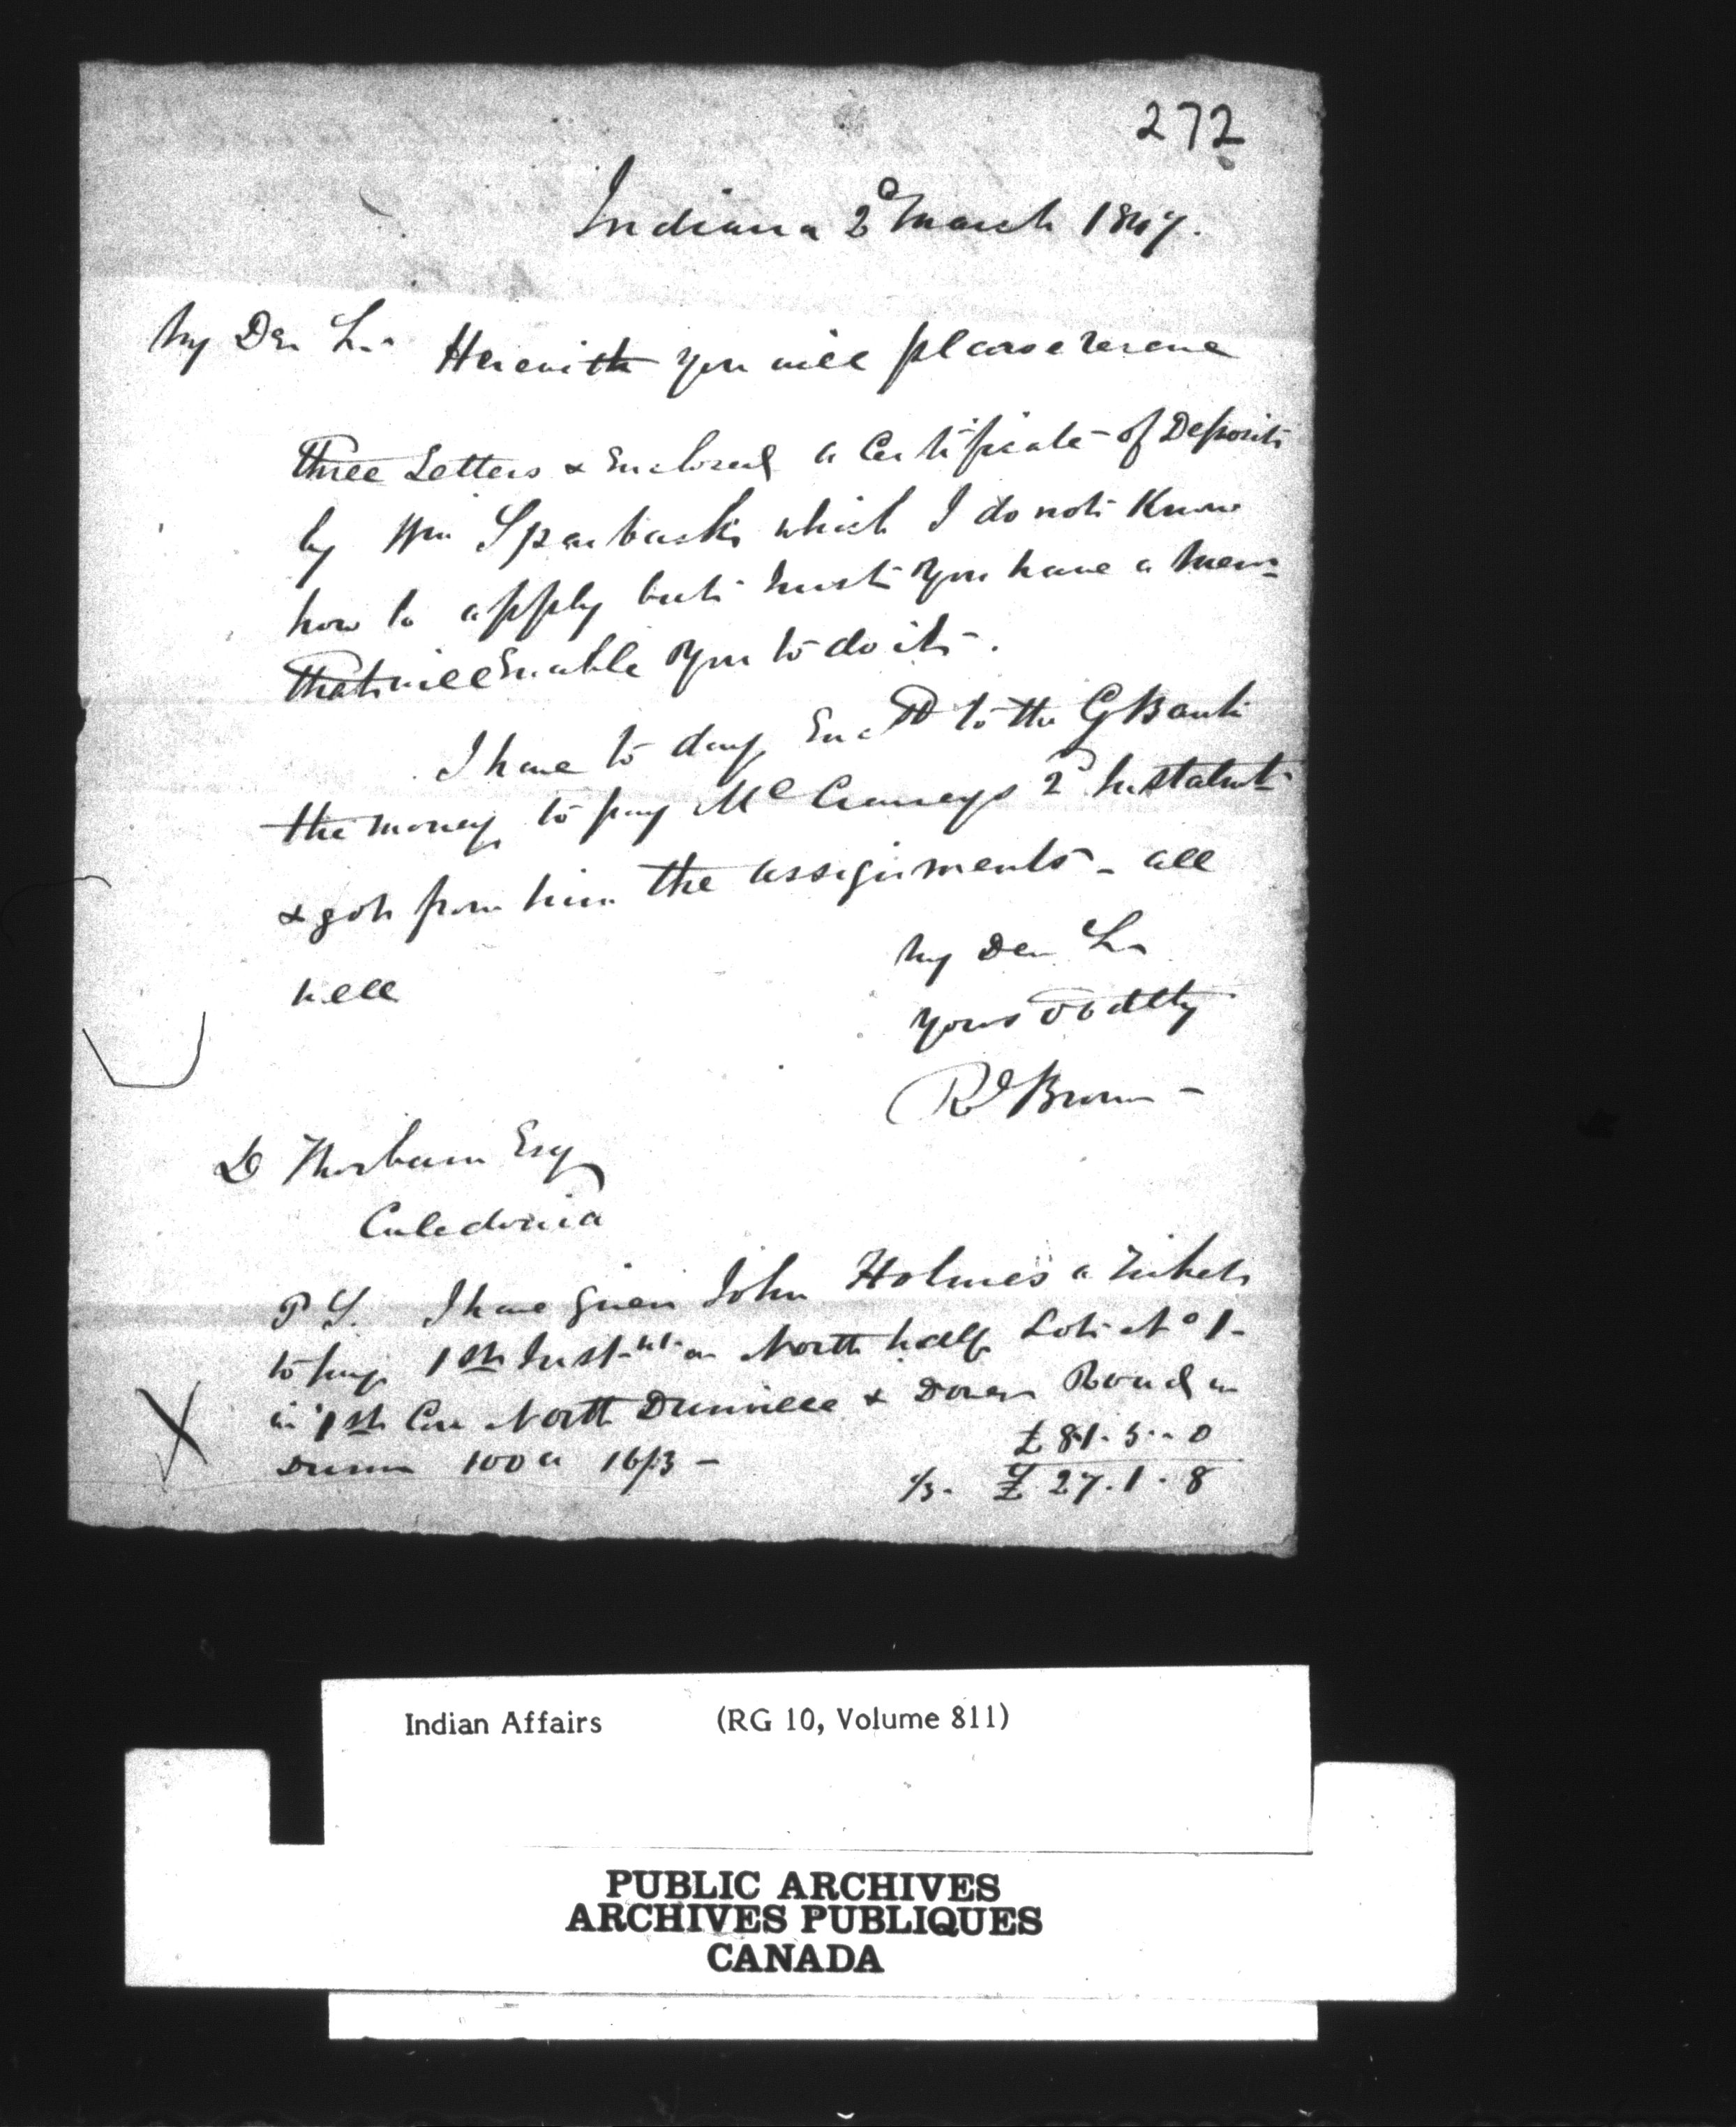 272
Indiana 2d March 1847.
My Dear Sir Herewith you will please receive
Three Letters & Enclosed a Certificate of Deposit
by Wm which I do not Know
how to apply but trust you have a mem:
that will Enable you to do it.
I have to day Encd to the G Bank
the money to pay Mc 2d Instalmt
& got from him the assignments - all
well
My Dear Sir
yours obdtly
Rd Brown
D Thorburn Esq
Caledonia
P S. I have given John Holmes a Ticket
to pay 1st Inst.nt on North half Lot No 1
in 1st Con North Dunnville & Dover Road in
Dunn 100 a 16/3 -
£ 81.5..0
1/3. £ 27.1.8
Indian Affairs (RG 10, Volume 811)
PUBLIC ARCHIVES
ARCHIVES PUBLIQUES
CANADA